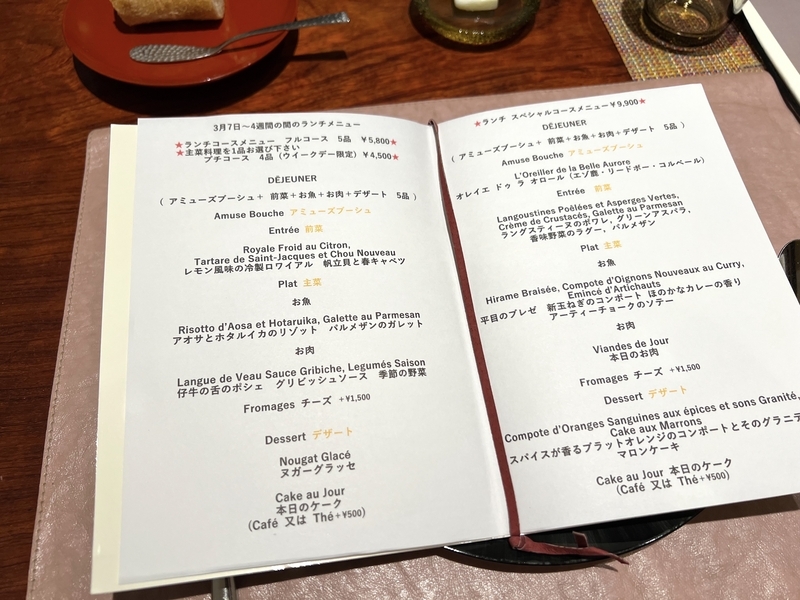 3月7日～4週間の間のランチメニュー
★ランチコースメニュー フルコース 5品 ￥5,800★
★主菜料理を1品お選び下さい
プチコース 4品（ウイークデー限定）￥4,500★
DÉJEUNER
( アミューズブーシュ＋ 前菜＋お魚＋お肉＋デザート 5品 )
Amuse Bouche アミューズブーシュ
Entrée 前菜
Royale Froid au Citron,
Tartare de Saint-Jacques et Chou Nouveau
レモン風味の冷製ロワイアル 帆立貝と春キャベツ
Plat 主菜
お魚
Risotto d'Aosa et Hotaruika, Galette au Parmesan
アオサとホタルイカのリゾット パルメザンのガレット
お肉
Langue de Veau Sauce Gribiche, Legumés Saison
仔牛の舌のポシェ グリビッシュソース 季節の野菜
Fromages チーズ +¥1,500
Dessert デザート
Nougat Glacé
ヌガーグラッセ
Cake au Jour
本日のケーク
(Café 又は Thé+¥500)
★ランチ スペシャルコースメニュー￥9,900★
DÉJEUNER
( アミューズブーシュ＋ 前菜＋お魚＋お肉＋デザート 5品 )
Amuse Bouche アミューズブーシュ
L'Oreiller de la Belle Aurore
オレイエ ドゥ ラ オロール（エゾ鹿・リードボー・コルベール）
Entrée 前菜
Langoustines Poêlées et Asperges Vertes,
Crème de Crustacés, Galette au Parmesan
ラングスティーヌのポワレ, グリーンアスパラ,
香味野菜のラグー, パルメザン
Plat 主菜
お魚
Hirame Braisée, Compote d'Oignons Nouveaux au Curry,
Emincé d'Artichauts
平目のブレゼ 新玉ねぎのコンポート ほのかなカレーの香り
アーティーチョークのソテー
お肉
Viandes de Jour
本日のお肉
Fromages チーズ +¥1,500
Dessert デザート
Compote d'Oranges Sanguines aux épices et sons Granité,
Cake aux Marrons
スパイスが香るブラットオレンジのコンポートとそのグラニテ
マロンケーキ
Cake au Jour 本日のケーク
(Café 又は Thé+¥500)